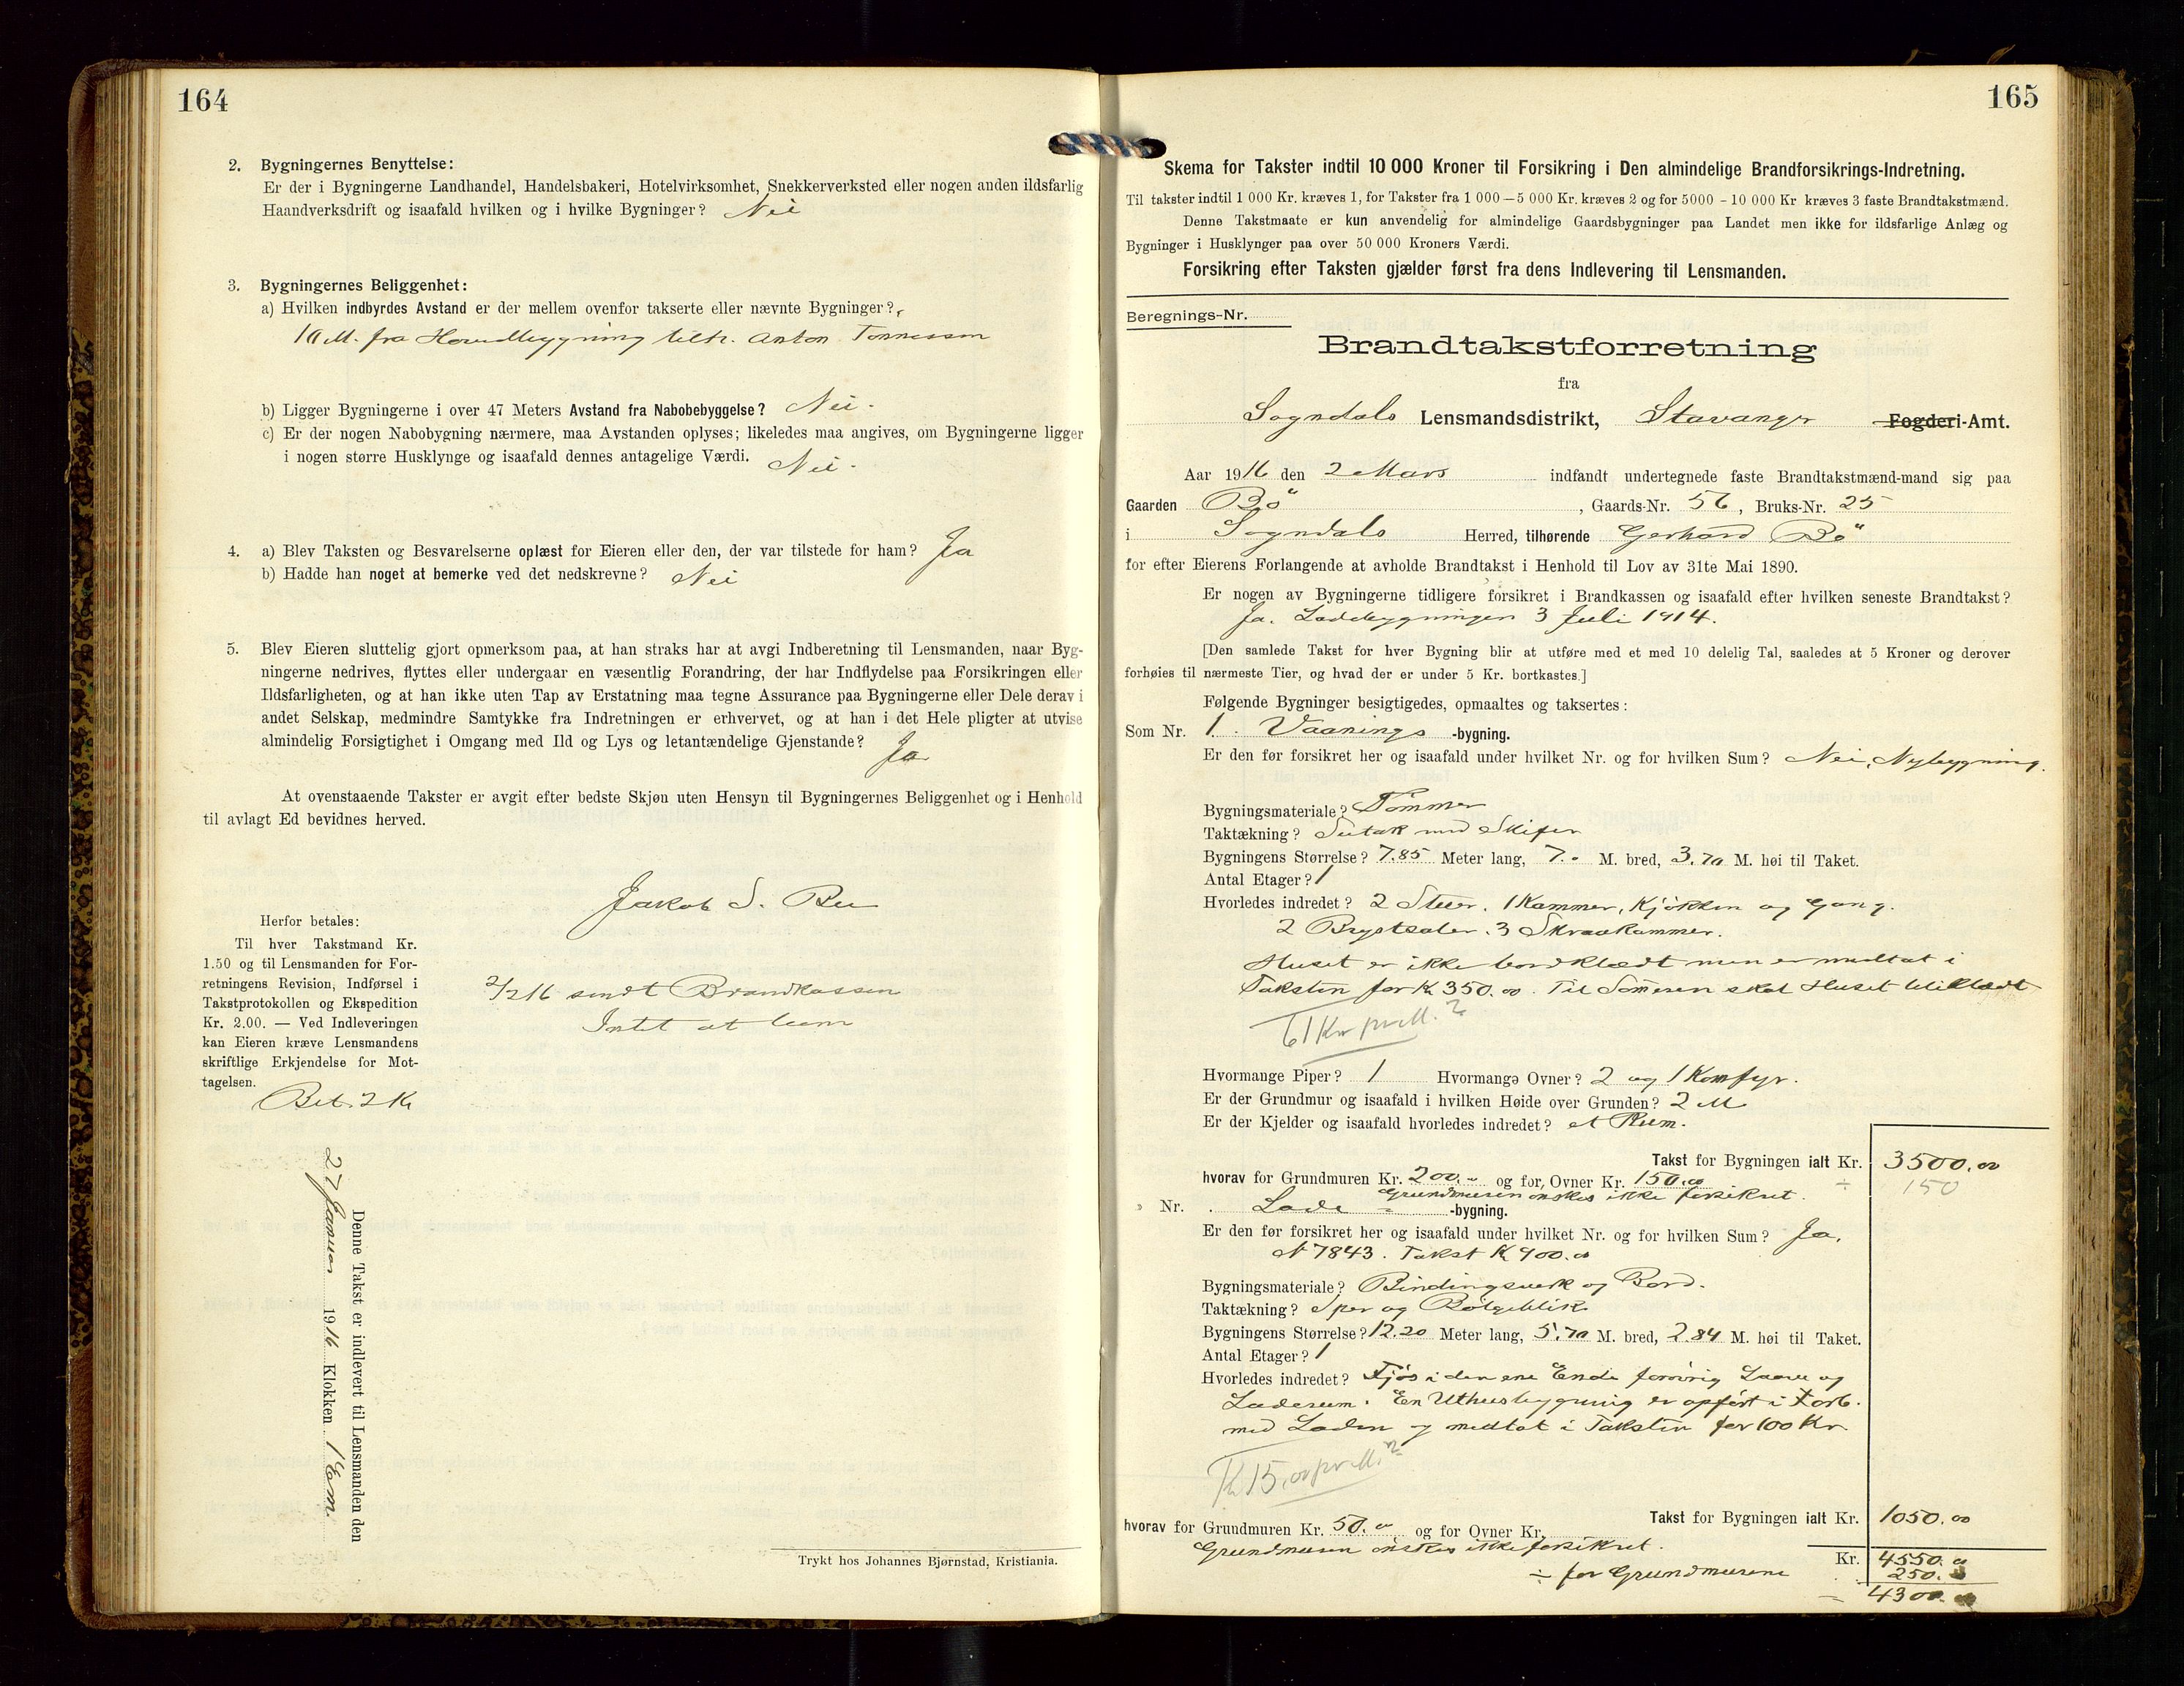 164
2. Bygningernes Benyttelse:
Er der i Bygningerne Landhandel, Handelsbakeri, Hotelvirksomhet, Snekkerverksted eller nogen anden ildsfarlig
Haandverksdrift og isaafald hvilken og i hvilke Bygninger? Nei
3. Bygningernes Beliggenhet:
a) Hvilken indbyrdes Avstand er der mellem ovenfor takserte eller nævnte Bygninger?
10 M. fra Hovedbygning tilh. Anton Tönnessen
b) Ligger Bygningerne i over 47 Meters Avstand fra Nabobebyggelse? Nei.
c) Er der nogen Nabobygning nærmere, maa Avstanden oplyses; likeledes maa angives, om Bygningerne ligger
i nogen større Husklynge og isaafald dennes antagelige Værdi. Nei.
4. a) Blev Taksten og Besvarelserne oplæst for Eieren eller den, der var tilstede for ham? Ja
b) Hadde han noget at bemerke ved det nedskrevne? Nei
5. Blev Eieren sluttelig gjort opmerksom paa, at han straks har at avgi Indberetning til Lensmanden, naar Byg-
ningerne nedrives, flyttes eller undergaar en væsentlig Forandring, der har Indflydelse paa Forsikringen eller
Ildsfarligheten, og at han ikke uten Tap av Erstatning maa tegne Assurance paa Bygningerne eller Dele derav i
andet Selskap, medmindre Samtykke fra Indretningen er erhvervet, og at han i det Hele pligter at utvise
almindelig Forsigtighet i Omgang med Ild og Lys og letantændelige Gjenstande? Ja
At ovenstaaende Takster er avgit efter bedste Skjøn uten Hensyn til Bygningernes Beliggenhet og i Henhold
til avlagt Ed bevidnes herved.
Jakob S.
Herfor betales:
Til hver Takstmand Kr.
1.50 og til Lensmanden for For-
retningens Revision, Indførsel i
Takstprotokollen og Ekspedition
Kr. 2.00. — Ved Indleveringen
kan Eieren kræve Lensmandens
skriftlige Erkjendelse for Mot-
tagelsen.
Bet. 2 K
sendt Brandkassen
Intet at
Denne Takst er indlevert til Lensmanden den
27 Januar 1916 Klokken 1 Em.
Trykt hos Johannes Bjørnstad, Kristiania.
165
Skema for Takster indtil 10 000 Kroner til Forsikring i Den almindelige Brandforsikrings-Indretning.
Til takster indtil 1 000 Kr. kræves 1, for Takster fra 1 000 — 5 000 Kr. kræves 2 og for 5000 - 10 000 Kr kræves 3 faste Brandtakstmænd.
Denne Takstmaate er kun anvendelig for almindelige Gaardsbygninger paa Landet men ikke for ildsfarlige Anlæg og
Bygninger i Husklynger paa over 50 000 Kroners Værdi.
Forsikring efter Taksten gjælder først fra dens Indlevering til Lensmanden.
Beregnings-Nr.
Brandtakstforretning
fra
Sogndals Lensmandsdistrikt, Stavanger Fogderi-Amt.
Aar 1916 den 2 Mars indfandt undertegnede faste Brandtakstmænd-mand sig paa
Gaarden Bö, Gaards-Nr. 56, Bruks-Nr. 25
i Sogndals Herred, tilhørende Gerhard Bö
for efter Eierens Forlangende at avholde Brandtakst i Henhold til Lov av 31te Mai 1890.
Er nogen av Bygningerne tidligere forsikret i Brandkassen og isaafald efter hvilken seneste Brandtakst?
Ja. Ladebygningen 3 Juli 1914.
[Den samlede Takst for hver Bygning blir at utføre med et med 10 delelig Tal, saaledes at 5 Kroner og derover
forhøies til nærmeste Tier, og hvad der er under 5 Kr. bortkastes.]
Følgende Bygninger besigtigedes, opmaaltes og taksertes:
Som Nr. 1. Vaanings -bygning.
Er den før forsikret her og isaafald under hvilket Nr. og for hvilken Sum? Nei, Nybygning.
Bygningsmateriale? Tömmer
Taktækning? Sutak med Skifer
Bygningens Størrelse? 7.85 Meter lang, 7.0 M. bred, 3.70 M. høi til Taket.
Antal Etager? 1
Hvorledes indredet? 2 Stuer. 1 Kammer, Kjökken og Gang.
2 Brystsaler. 3 Skraakammer.
Huset er ikke bordklædt men er medtat i
Taksten for K 350.00. Til Sommeren skal Huset bli klædt
61 Kr pr M.2
Hvormange Piper? 1 Hvormange Ovner? 2 og 1 Komfyr.
Er der Grundmur og isaafald i hvilken Høide over Grunden? 2 M
Er der Kjelder og isaafald hvorledes indredet? et Rum.
Takst for Bygningen ialt Kr. 3500.00
hvorav for Grundmuren Kr. 200.- og for Ovner Kr. 150.00 ÷ 150
Grundmuren önskes ikke forsikret.
" Nr. Lade -bygning.
Er den før forsikret her og isaafald under hvilket Nr. og for hvilken Sum? Ja.
N 7843. Takst K 900.00
Bygningsmateriale? Bindingsverk og Bord.
Taktækning? Sper og Bölgeblik
Bygningens Størrelse? 12.20 Meter lang, 5.70 M. bred, 2.84 M. høi til Taket.
Antal Etager? 1
Hvorledes indredet? Fjös i den ene Ende forövrig Laave og
Laderum. En Uthusbygning er opfört i Forb.
med Laden og medtat i Taksten for 100 Kr.
K 15.00 pr M.2
Takst for Bygningen ialt Kr. 1050.00
hvorav for Grundmuren Kr. 50.00 og for Ovner Kr.
Grundmuren önskes ikke forsikret.
Kr. 4550.00
÷ for Grundmurene 250.
4300.00